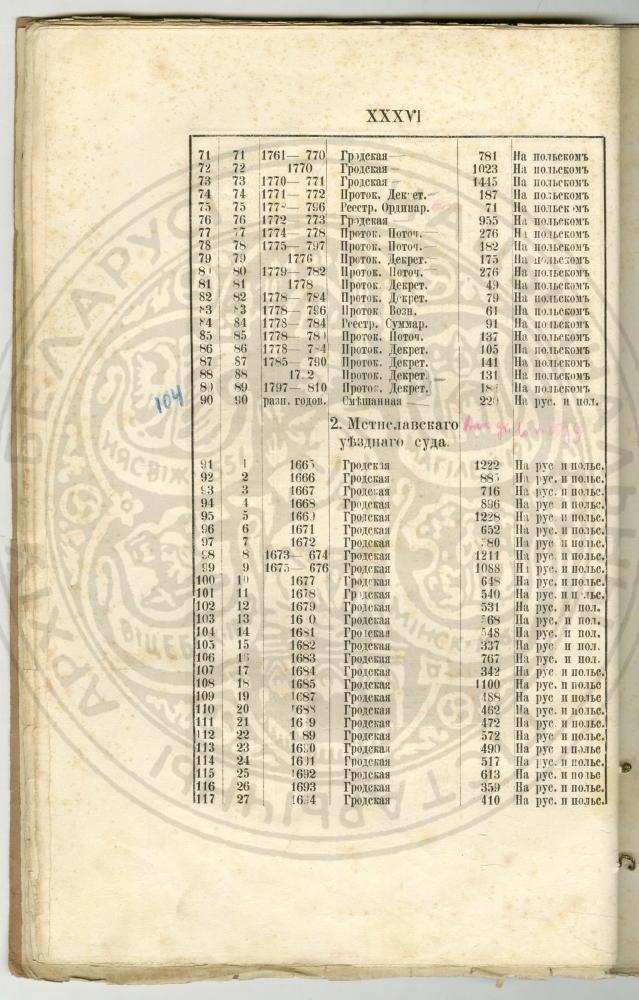 XXXVI
71 71 1761— 770 Гродская 781 На польскомъ
72 72 1770 Гродская 1023 На польскомъ
73 73 1770— 771 Гродская 1445 На польскомъ
74 74 1771— 772 Проток. Декрет. 187 На польскомъ
75 75 177 — 796 Реестр. Ординар. 71 На польскомъ
76 76 1772— 773 Гродская 955 На польскомъ
77 77 1774— 778 Проток. Поточ. 276 На польскомъ
78 78 1775— 797 Проток. Поточ. 182 На польскомъ
79 79 1776 Проток. Декрет. 175 На польскомъ
80 80 1779— 782 Проток. Поточ. 276 На польскомъ
81 81 1778 Проток. Декрет. 49 На польскомъ
82 82 1778— 784 Проток. Декрет. 79 На польскомъ
83 83 1778— 796 Проток. Возн. 61 На польскомъ
84 84 1778— 784 Реестр. Суммар. 91 На польскомъ
85 85 1778— 78 Проток. Поточ. 137 На польскомъ
86 86 1778— 784 Проток. Декрет. 105 На польскомъ
87 87 1785— 790 Проток. Декрет. 141 На польскомъ
88 88 17 2 Проток. Декрет. 131 На польскомъ
89 89 1797— 810 Проток. Декрет. 18 На польскомъ
104
90 90 разн. годов. Смѣшанная 220 На рус. и пол.
2. Мстиславскаго
уѣзднаго суда.
91 1 1665 Гродская 1222 На рус. и польс.
92 2 1666 Гродская 885 На рус. и польс.
93 3 1667 Гродская 716 На рус. и польс.
94 4 1668 Гродская 896 На рус. и польс.
95 5 1669 Гродская 1228 На рус. и польс.
96 6 1671 Гродская 652 На рус. и польс.
97 7 1672 Гродская 80 На рус. и польс.
98 8 1673— 674 Гродская 1211 На рус. и польс.
99 9 1675— 676 Гродская 1088 На рус. и польс.
100 10 1677 Гродская 648 На рус. и польс.
101 11 1678 Гродская 540 На рус. и польс.
102 12 1679 Гродская 531 На рус. и пол.
103 13 16 0 Гродская 568 На рус. и пол.
104 14 1681 Гродская 548 На рус. и пол.
105 15 1682 Гродская 337 На рус. и пол.
106 16 1683 Гродская 767 На рус. и пол.
107 17 1684 Гродская 342 На рус. и польс
108 18 1685 Гродская 1100 На рус. и польс.
109 19 1687 Гродская 488 На рус. и польс
110 20 1688 Гродская 462 На рус. и польс.
111 21 16 9 Гродская 472 На рус. и польс.
112 22 1 89 Гродская 572 На рус. и польс
113 23 1690 Гродская 490 На рус и польс
114 24 1691 Гродская 517 На рус. и польс.
115 25 1692 Гродская 613 На рус. и польс
116 26 1693 Гродская 359 На рус. и польс.
117 27 1694 Гродская 410 На рус. и польс.